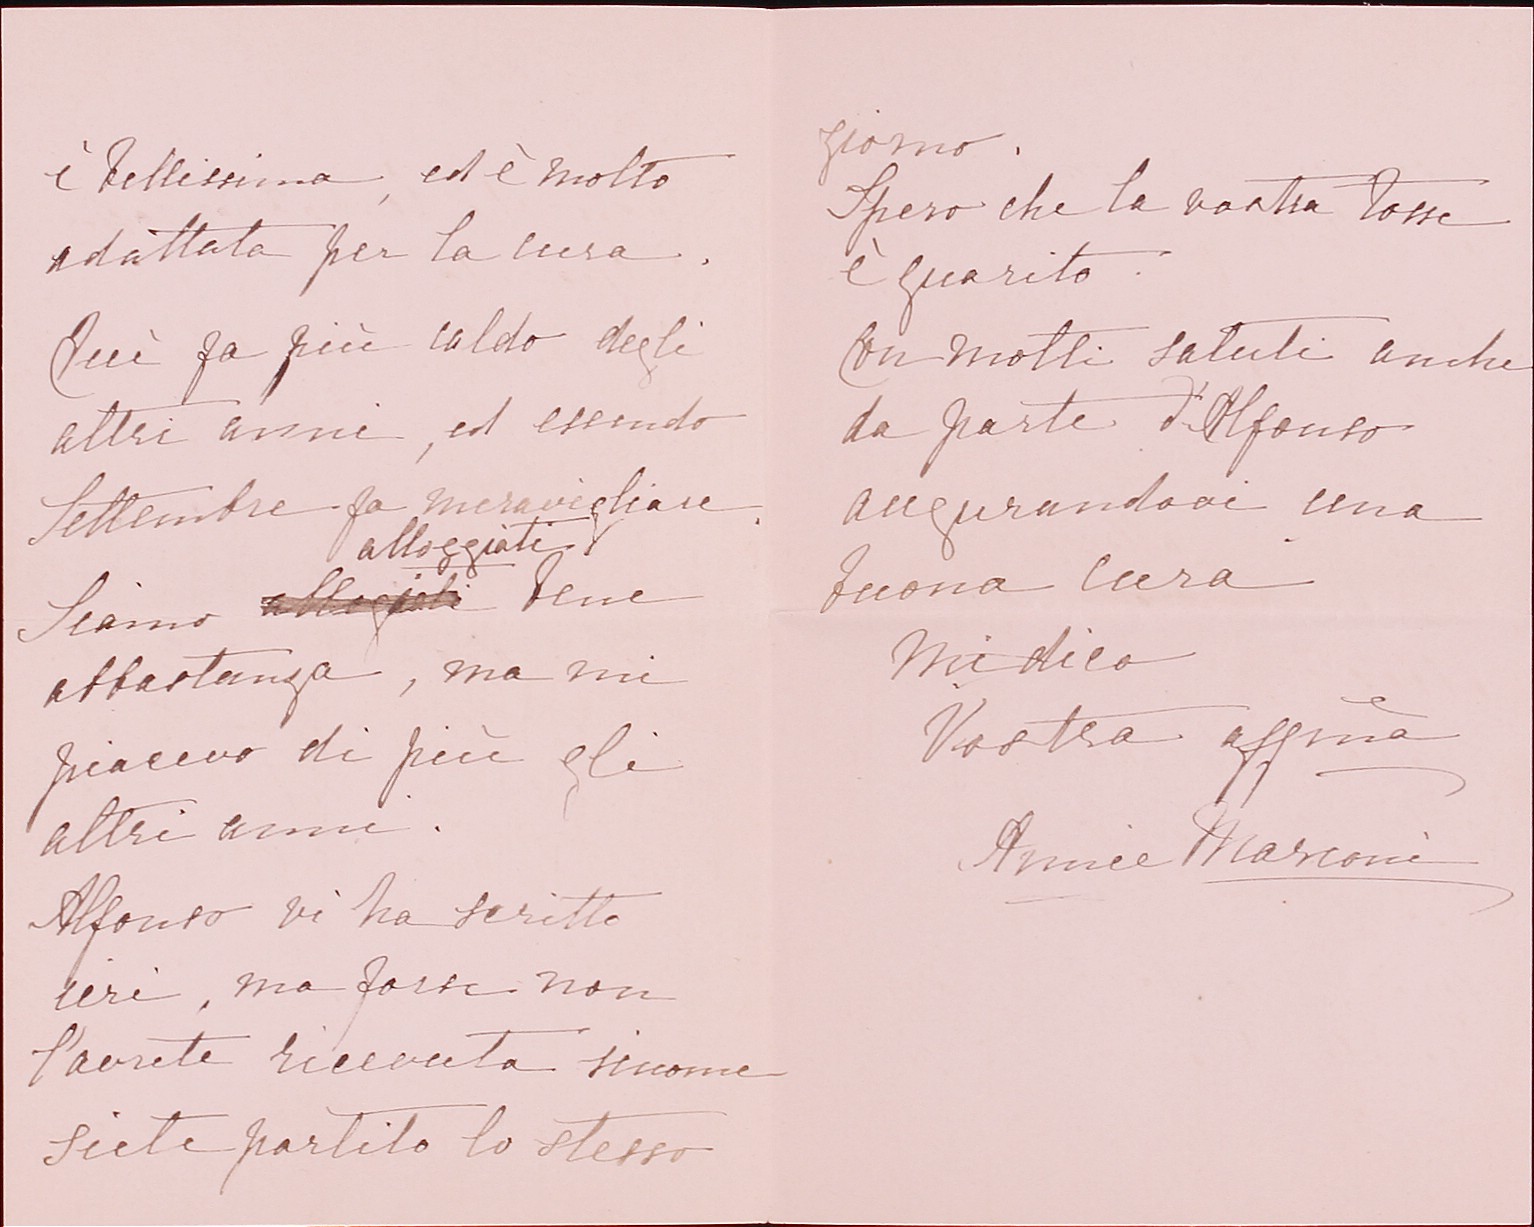 è bellissima, ed è molto
adattata per la cura.
Quì fa più caldo degli
altri anni, ed essendo
Settembre fa meravigliare.
alloggiati
Siamo allogjati bene
abbastanza, ma mi
piacevo di più gli
altri anni.
Alfonso vi ha scritto
ieri, ma forse non
l'avrete ricevuta siccome
siete partito lo stesso
giorno.
Spero che la vostra tosse
è guarito.
Con molti saluti anche
da parte d'Alfonso
augurandovi una
buona cura
Mi dico
Vostra affma
Annie Marconi